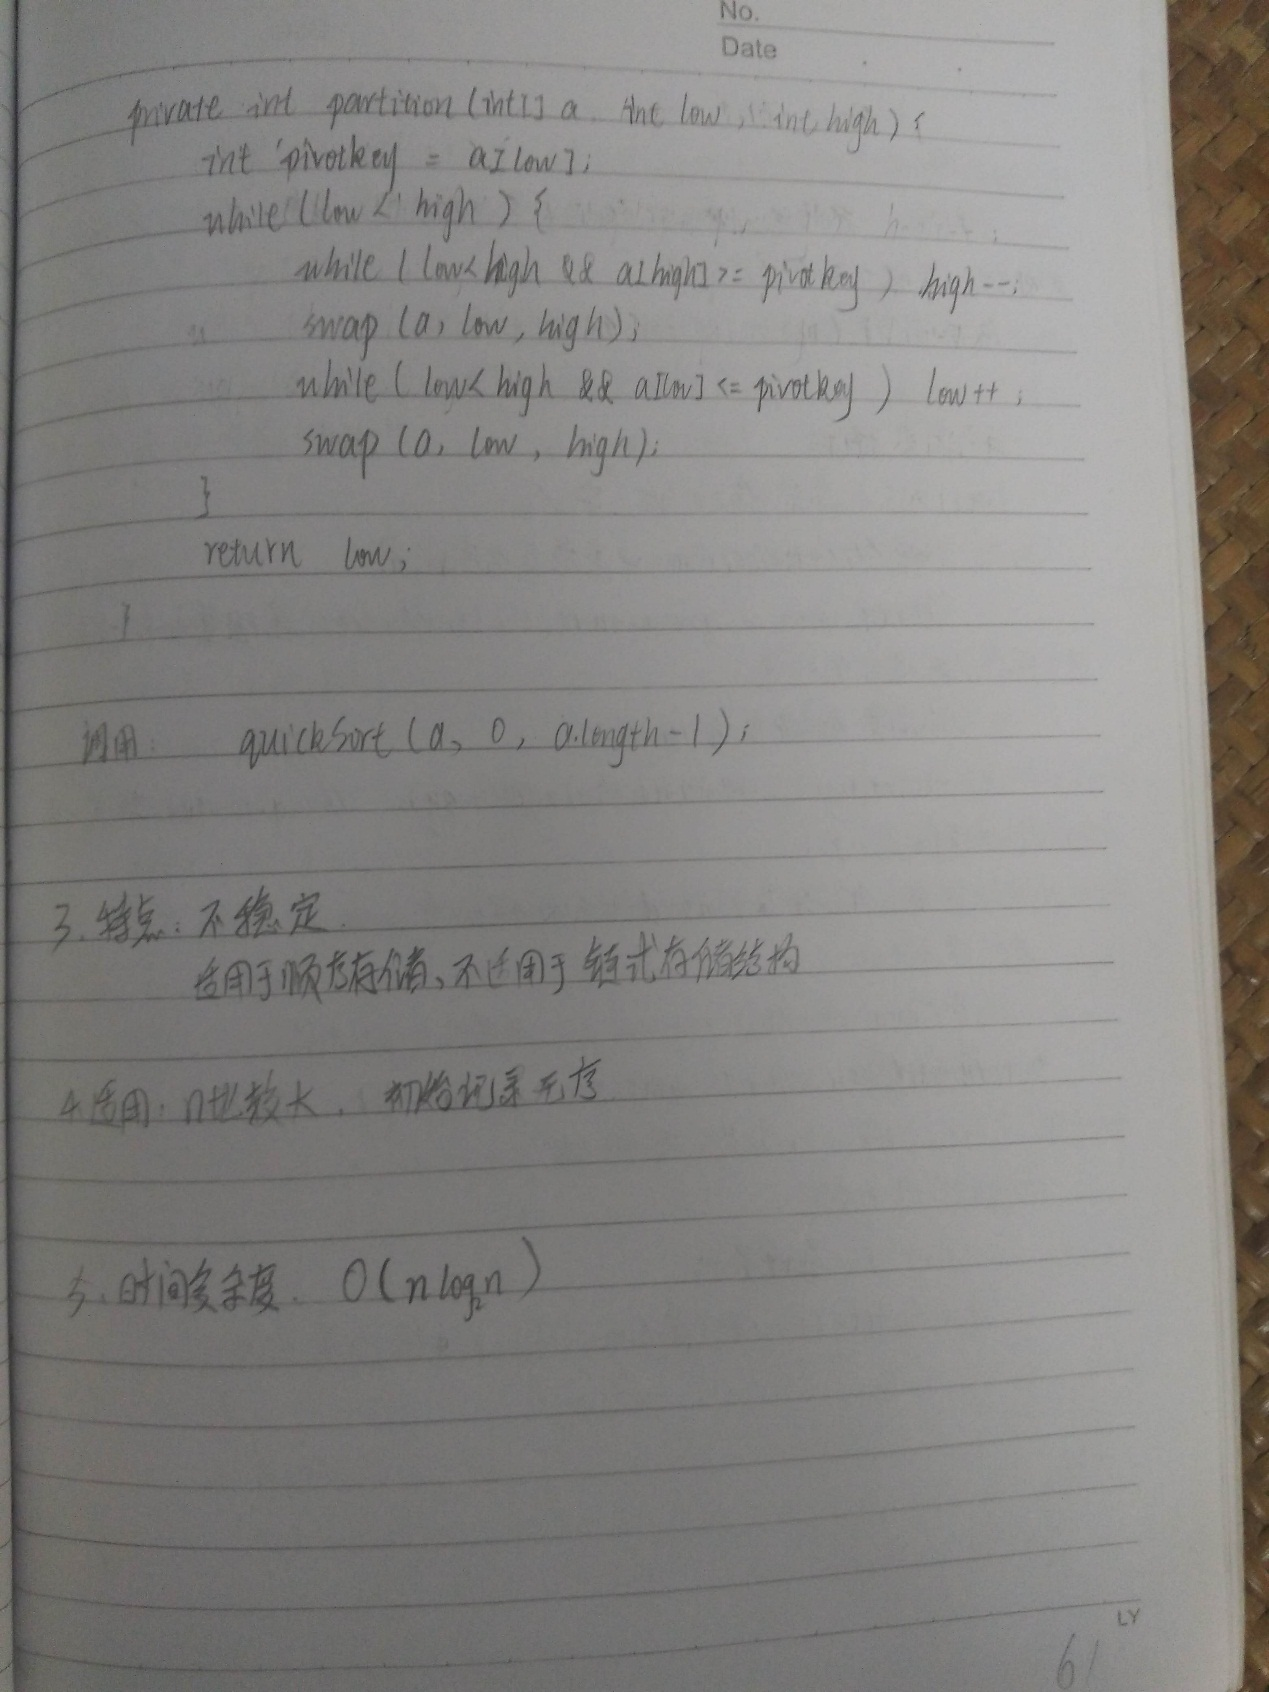 No.
Date
private int partition (int[] a, int low, int high) {
int pivotkey = a[low];
while (low < high) {
while (low<high && a[high] >= pivotkey) high--;
swap (a, low, high);
while (low<high && a[low] <= pivotkey) low++;
swap (a, low, high);
}
return low;
}
调用: quickSort (a, 0, a.length-1);
3. 特点: 不稳定.
适用于顺序存储、不适用于链式存储结构
4. 适用: n比较大, 初始记录无序
5. 时间复杂度. O(nlog₂n)
LY
61